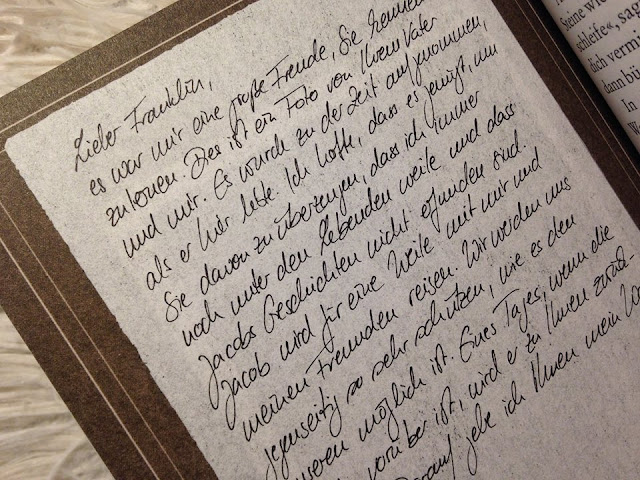 Lieber Franklin,
es war mir eine große Freude, Sie kennen
zulernen. Dies ist ein Foto von Ihrem Vater
und mir. Es wurde zu der Zeit aufgenommen,
als er hier lebte. Ich hoffe, dass es genügt, um
Sie davon zu überzeugen, dass ich immer
noch unter den Lebenden weile und dass
Jacobs Geschichten nicht erfunden sind.
Jacob wird für eine Weile mit mir und
meinen Freunden reisen. Wir werden uns
gegenseitig so sehr schützen, wie es den
unseren möglich ist. Eines Tages, wenn die
vorüber ist, wird er zu Ihnen zurück-
Darauf gebe ich Ihnen mein Wo
Steine wie
schleife«, sag
dich vermi
dann bü
In
W